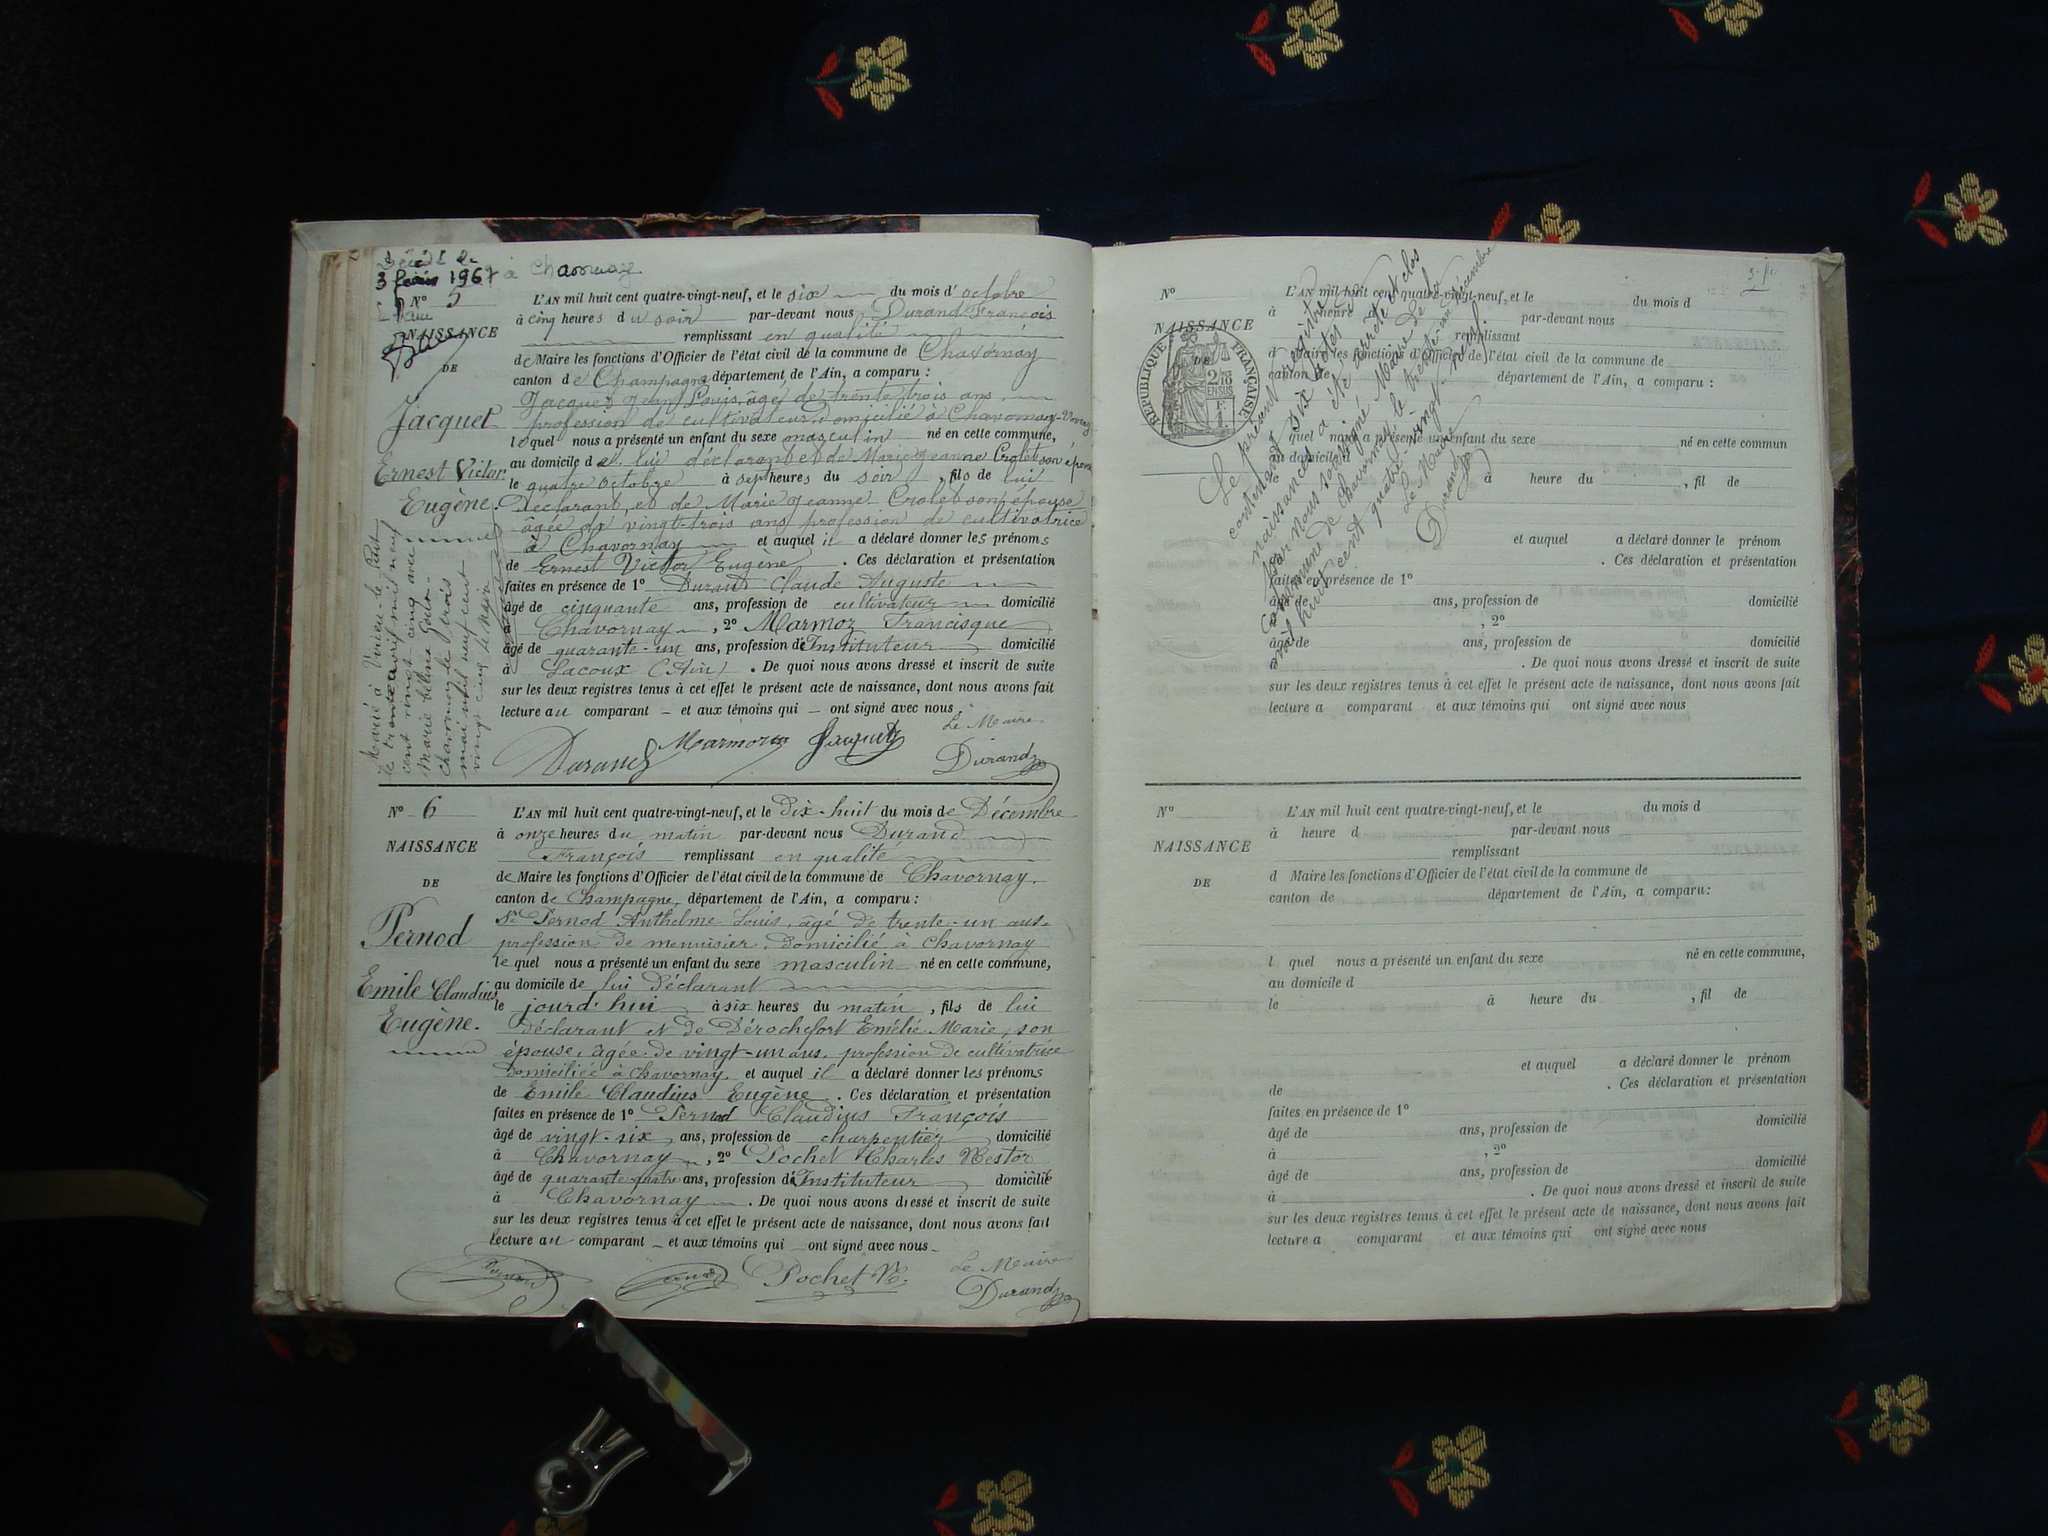 3 février 1967 à Chavornay
Nº 5
NAISSANCE
DE
Jacquet
Ernest Victor
Eugène.
Marié à Virieu-le-Petit
le trente avril mil neuf
cent vingt-cinq avec
Marie
Chavornay le trois
mai mil neuf cent
vingt cinq Le Maire
L'AN mil huit cent quatre-vingt-neuf, et le six du mois d'octobre
à cinq heures du soir par-devant nous Durand François
remplissant en qualité
de Maire les fonctions d'Officier de l'état civil de la commune de Chavornay
canton de Champagne département de l'Ain, a comparu :
Jacquet Jean Louis, âgé de trente trois ans,
profession de cultivateur domicilié à Chavornay
lequel nous a présenté un enfant du sexe masculin né en cette commune,
au domicile de lui déclarant et de Marie Jeanne Crolet son épouse
le quatre octobre à sept heures du soir, fils de lui
déclarant, et de Marie Jeanne Crolet son épouse
âgée de vingt-trois ans profession de cultivatrice
à Chavornay et auquel il a déclaré donner les prénoms
de Ernest Victor Eugène. Ces déclaration et présentation
faites en présence de 1º Durand Claude Auguste
âgé de cinquante ans, profession de cultivateur domicilié
à Chavornay, 2º Marmoz Francisque
âgé de quarante-un ans, profession d'Instituteur domicilié
à Lacoux (Ain). De quoi nous avons dressé et inscrit de suite
sur les deux registres tenus à cet effet le présent acte de naissance, dont nous avons fait
lecture au comparant et aux témoins qui ont signé avec nous.
Durand Marmoz Jacquet Le Maire
Durand
Nº 6
NAISSANCE
DE
Pernod
Emile Claudius
Eugène.
L'AN mil huit cent quatre-vingt-neuf, et le dix-huit du mois de Décembre
à onze heures du matin par-devant nous Durand
François remplissant en qualité
de Maire les fonctions d'Officier de l'état civil de la commune de Chavornay,
canton de Champagne, département de l'Ain, a comparu :
Sr Pernod Anthelme Louis, âgé de trente-un ans,
profession de menuisier, domicilié à Chavornay
lequel nous a présenté un enfant du sexe masculin né en cette commune,
au domicile de lui déclarant
le jourd'hui à six heures du matin, fils de lui
déclarant et de Dérochefort Emélie Marie, son
épouse, âgée de vingt-un ans, profession de cultivatrice
domiciliée à Chavornay et auquel il a déclaré donner les prénoms
de Emile Claudius Eugène. Ces déclaration et présentation
faites en présence de 1º Pernod Claudius François
âgé de vingt-six ans, profession de charpentier domicilié
à Chavornay, 2º Pochet Charles Nestor
âgé de quarante-quatre ans, profession d'Instituteur domicilié
à Chavornay. De quoi nous avons dressé et inscrit de suite
sur les deux registres tenus à cet effet le présent acte de naissance, dont nous avons fait
lecture au comparant et aux témoins qui ont signé avec nous
Pernod Pernod Pochet N. Le Maire
Durand
Nº
NAISSANCE
DE
RÉPUBLIQUE FRANÇAISE
L'AN mil huit cent quatre-vingt-neuf, et le du mois d
à heure d par-devant nous
remplissant
d Maire les fonctions d'Officier de l'état civil de la commune de
canton de département de l'Ain, a comparu :
l quel nous a présenté un enfant du sexe né en cette commun
au domicile d
le à heure du , fil de
et auquel a déclaré donner le prénom
. Ces déclaration et présentation
faites en présence de 1º
âgé de ans, profession de domicilié
à , 2º
âgé de ans, profession de domicilié
à . De quoi nous avons dressé et inscrit de suite
sur les deux registres tenus à cet effet le présent acte de naissance, dont nous avons fait
lecture a comparant et aux témoins qui ont signé avec nous
Le présent registre
contenant Six actes de
naissances a été arrêté et clos
par nous soussigné Maire de la
commune de Chavornay le trente-un Décembre
mil huit cent quatre-vingt-neuf.
Le Maire
Durand
Nº
NAISSANCE
DE
L'AN mil huit cent quatre-vingt-neuf, et le du mois d
à heure d par-devant nous
remplissant
d Maire les fonctions d'Officier de l'état civil de la commune de
canton de département de l'Ain, a comparu:
l quel nous a présenté un enfant du sexe né en cette commune,
au domicile d
le à heure du , fil de
et auquel a déclaré donner le prénom
de . Ces déclaration et présentation
faites en présence de 1º
âgé de ans, profession de domicilié
à , 2º
âgé de ans, profession de domicilié
à . De quoi nous avons dressé et inscrit de suite
sur les deux registres tenus à cet effet le présent acte de naissance, dont nous avons fait
lecture a comparant et aux témoins qui ont signé avec nous